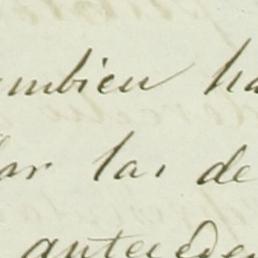 tambien ha
dar las de
anteceden